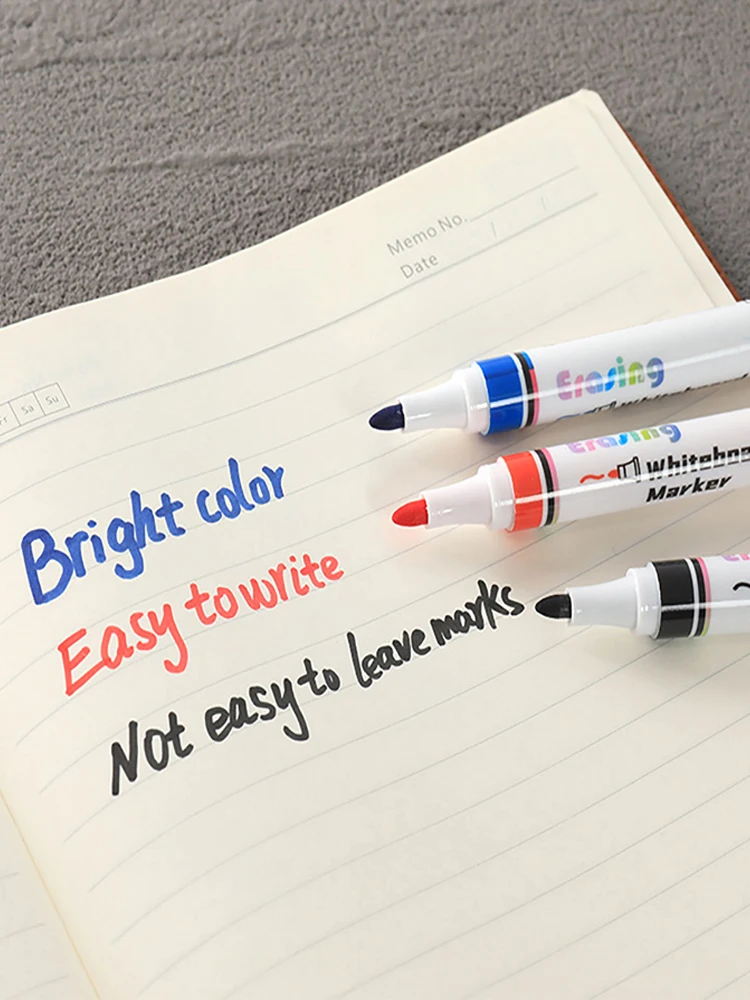 Memo No.
Date
Sa Su
Erasing
Erasing
Whiteboa
Marker
Bright color
Easy to write
Not easy to leave marks